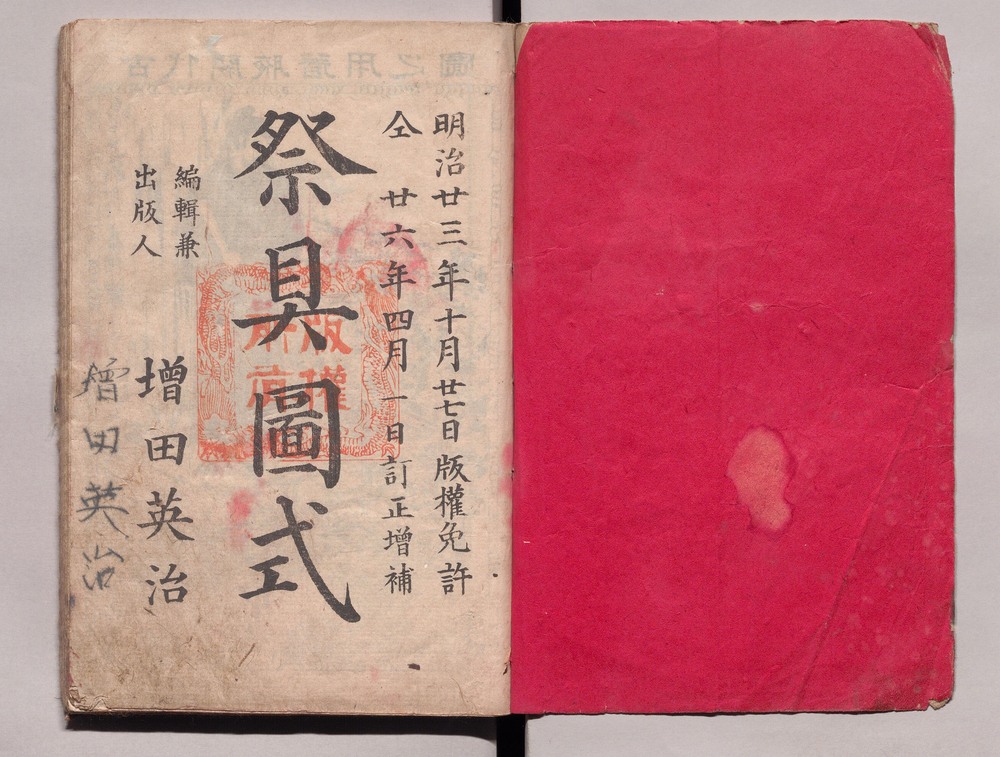 明治廿三年十月廿七日版權免許
仝　廿六年四月一日訂正增補
祭具圖式
版權
編輯兼
出版人
增田英治
增田英治